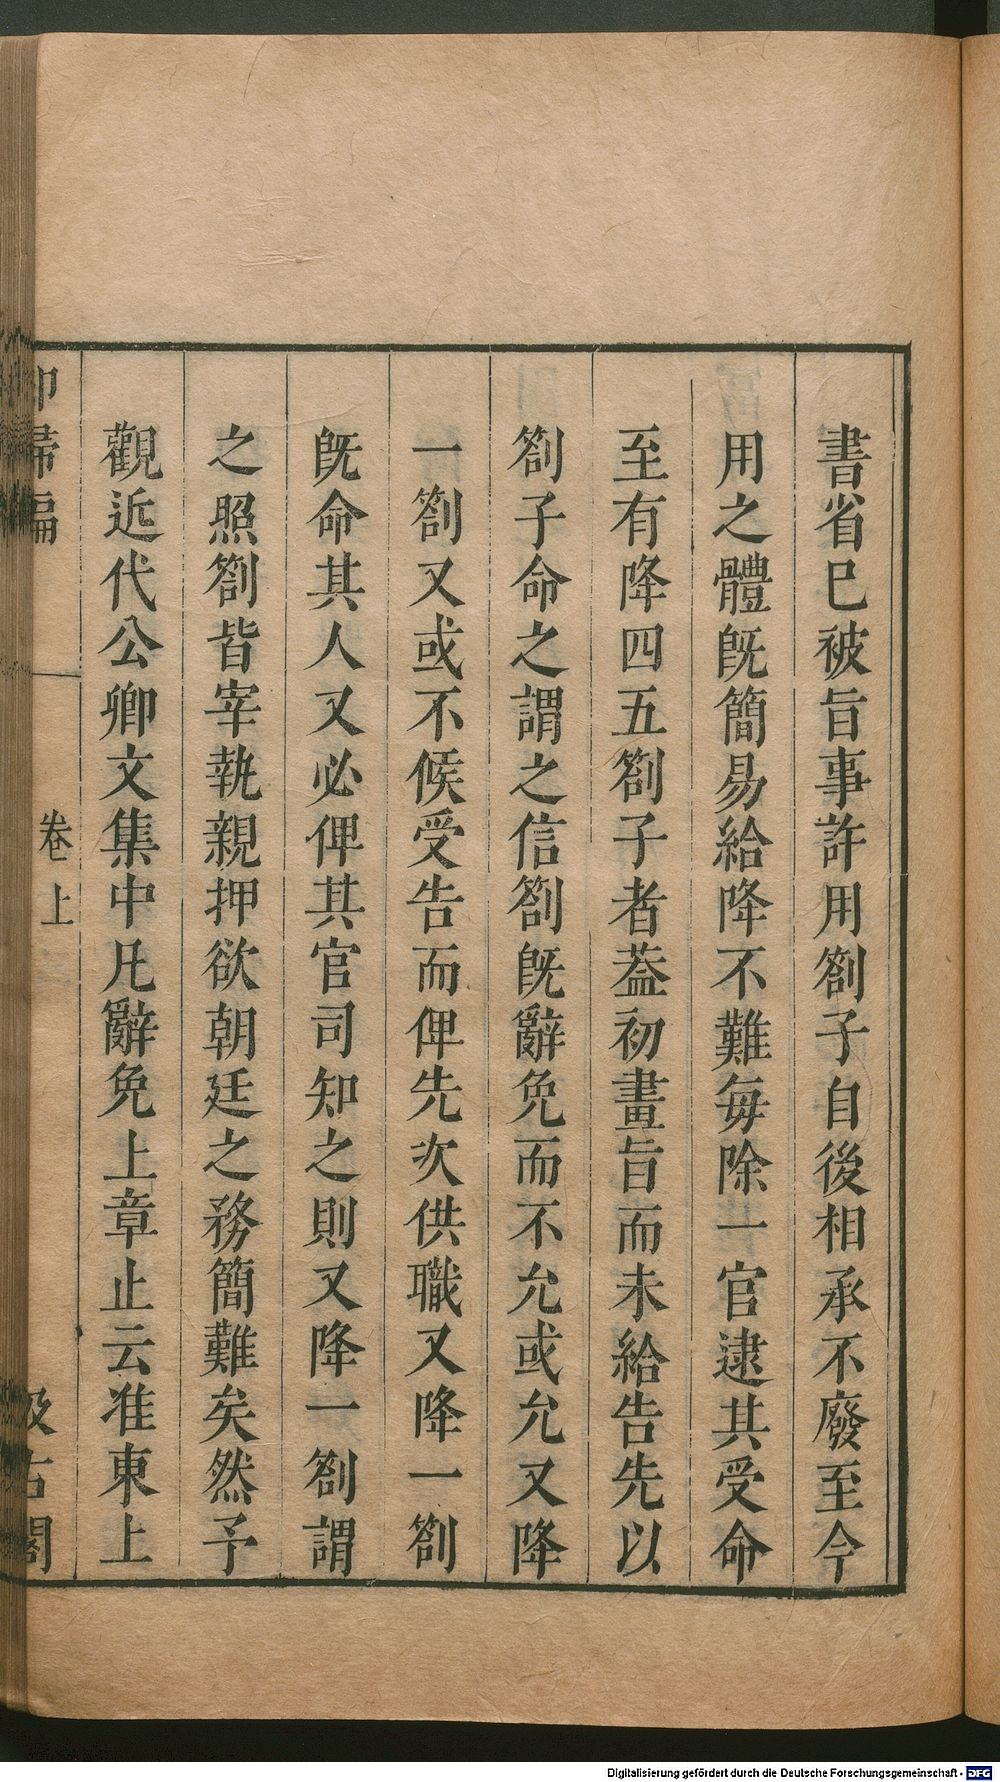 書省巳被旨事許用劄子自後相承不廢至今
用之體旣簡易給降不難每除一官逮其受命
至有降四五劄子者葢初畫旨而未給告先以
劄子命之謂之信劄旣辭免而不允或允又降
一劄又或不候受告而俾先次供職又降一劄
旣命其人又必俾其官司知之則又降一劄謂
之照劄皆宰執親押欲朝廷之務簡難矣然予
觀近代公卿文集中凡辭免上章止云准東上
卻掃編
卷上
汲古閣
Digitalisierung gefördert durch die Deutsche Forschungsgemeinschaft - DFG